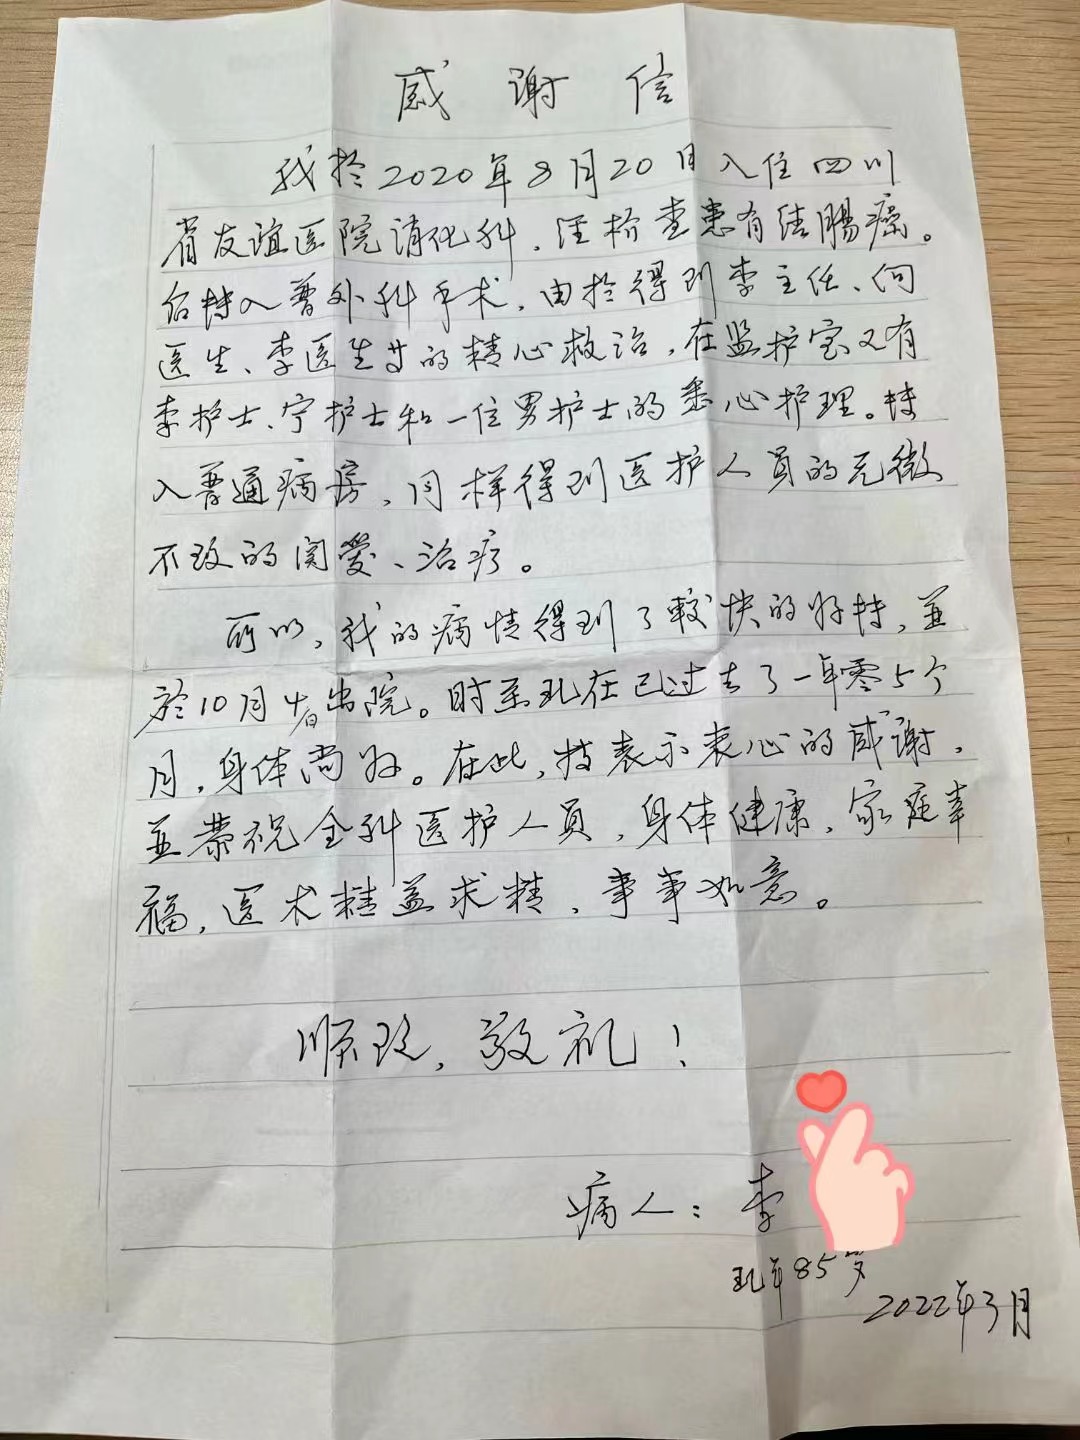 感谢信
我於2020年8月20日入住四川
省友谊医院消化科，经检查患有结腸癌。
后转入普外科手术，由於得到李主任、何
医生、李医生等的精心救治，在监护室又有
李护士、宁护士和一位男护士的悉心护理。转
入普通病房，同样得到医护人员的无微
不致的関愛、治疗。
所以，我的病情得到了較快的好转，並
於10月 出院。时至现在已过去了一年零5个
月，身体尚好。在此，技表示衷心的感谢，
並恭祝全科医护人员，身体健康，家庭幸
福，医术精益求精，事事如意。
顺致，敬礼！
病人：李
现年85岁
2022年3月